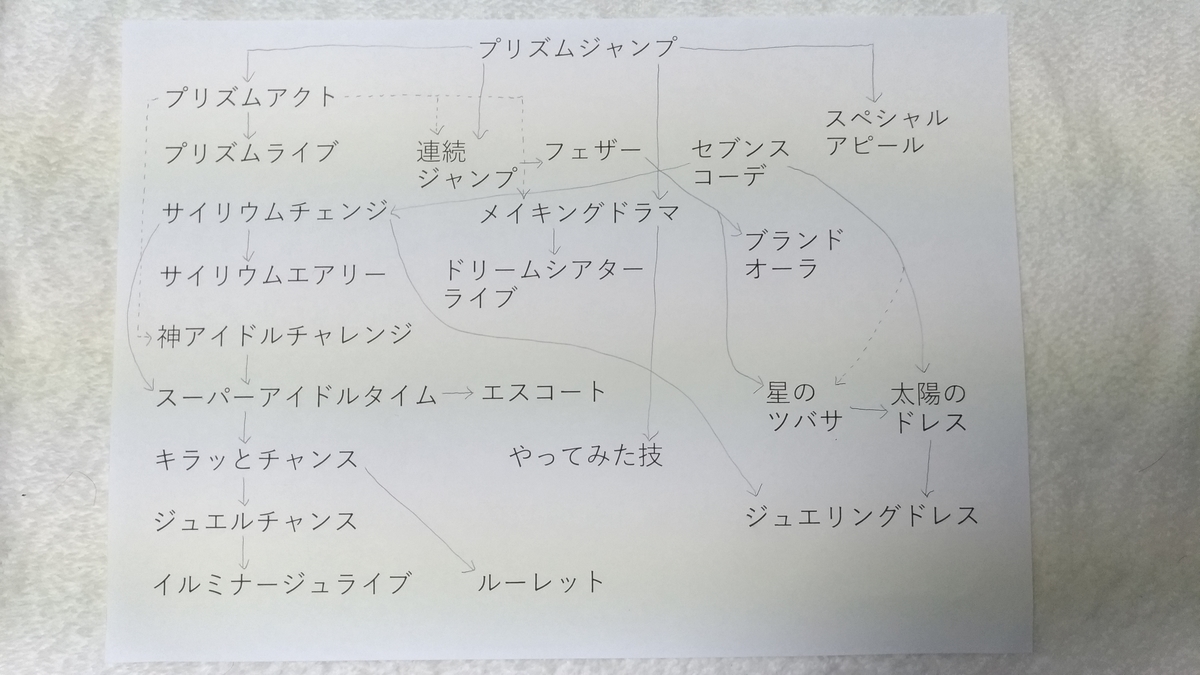 プリズムジャンプ
プリズムアクト
スペシャル
アピール
プリズムライブ
連続
ジャンプ
フェザー
セブンス
コーデ
サイリウムチェンジ
メイキングドラマ
ブランド
オーラ
サイリウムエアリー
ドリームシアター
ライブ
神アイドルチャレンジ
スーパーアイドルタイム
エスコート
星の
ツバサ
太陽の
ドレス
キラッとチャンス
やってみた技
ジュエルチャンス
ジュエリングドレス
イルミナージュライブ
ルーレット